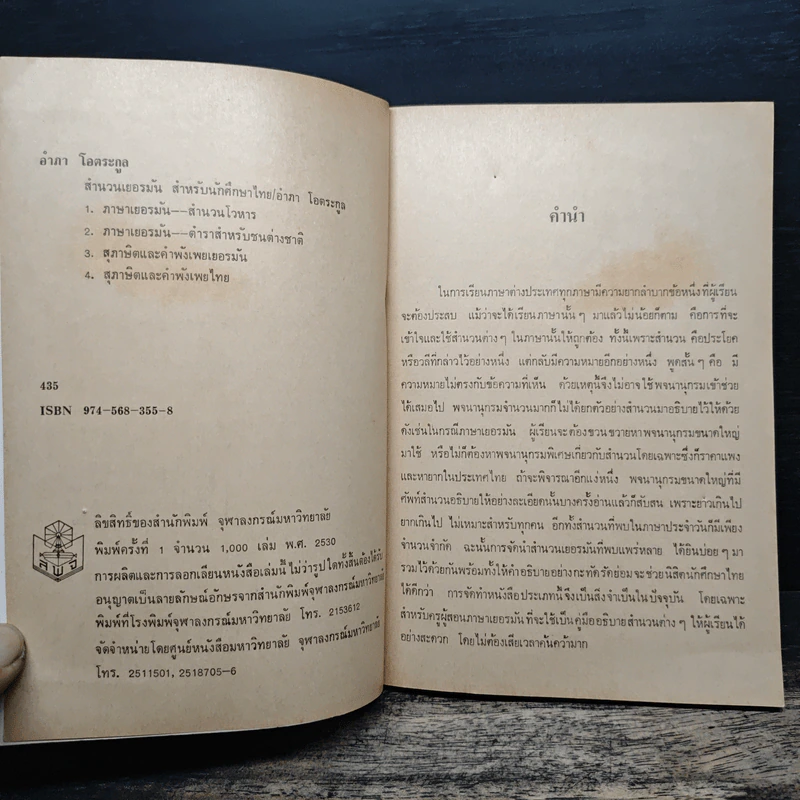 อำภา โอตระกูล
สำนวนเยอรมัน สำหรับนักศึกษาไทย/อำภา โอตระกูล
1. ภาษาเยอรมัน--สำนวนโวหาร
2. ภาษาเยอรมัน--ตำราสำหรับชนต่างชาติ
3. สุภาษิตและคำพังเพยเยอรมัน
4. สุภาษิตและคำพังเพยไทย
435
ISBN 974-568-355-8
สพจ
ลิขสิทธิ์ของสำนักพิมพ์ จุฬาลงกรณ์มหาวิทยาลัย
พิมพ์ครั้งที่ 1 จำนวน 1,000 เล่ม พ.ศ. 2530
การผลิตและการลอกเลียนหนังสือเล่มนี้ ไม่ว่ารูปใดทั้งสิ้นต้องได้รับ
อนุญาตเป็นลายลักษณ์อักษรจากสำนักพิมพ์จุฬาลงกรณ์มหาวิทยาลัย
พิมพ์ที่โรงพิมพ์จุฬาลงกรณ์มหาวิทยาลัย โทร. 2153612
จัดจำหน่ายโดยศูนย์หนังสือมหาวิทยาลัย จุฬาลงกรณ์มหาวิทยาลัย
โทร. 2511501, 2518705-6
คำนำ
ในการเรียนภาษาต่างประเทศทุกภาษามีความยากลำบากข้อหนึ่งที่ผู้เรียน
จะต้องประสบ แม้ว่าจะได้เรียนภาษานั้น ๆ มาแล้วไม่น้อยก็ตาม คือการที่จะ
เข้าใจและใช้สำนวนต่าง ๆ ในภาษานั้นให้ถูกต้อง ทั้งนี้เพราะสำนวน คือประโยค
หรือวลีที่กล่าวไว้อย่างหนึ่ง แต่กลับมีความหมายอีกอย่างหนึ่ง พูดสั้น ๆ คือ มี
ความหมายไม่ตรงกับข้อความที่เห็น ด้วยเหตุนี้จึงไม่อาจใช้พจนานุกรมเข้าช่วย
ได้เสมอไป พจนานุกรมจำนวนมากก็ไม่ได้ยกตัวอย่างสำนวนมาอธิบายไว้ให้ด้วย
ดังเช่นในกรณีภาษาเยอรมัน ผู้เรียนจะต้องขวนขวายหาพจนานุกรมขนาดใหญ่
มาใช้ หรือไม่ก็ต้องหาพจนานุกรมพิเศษเกี่ยวกับสำนวนโดยเฉพาะซึ่งก็ราคาแพง
และหายากในประเทศไทย ถ้าจะพิจารณาอีกแง่หนึ่ง พจนานุกรมขนาดใหญ่ที่มี
ศัพท์สำนวนอธิบายให้อย่างละเอียดนั้นบางครั้งอ่านแล้วก็สับสน เพราะยาวเกินไป
ยากเกินไป ไม่เหมาะสำหรับทุกคน อีกทั้งสำนวนที่พบในภาษาประจำวันก็มีเพียง
จำนวนจำกัด ฉะนั้นการจัดนำสำนวนเยอรมันที่พบแพร่หลาย ได้ยินบ่อย ๆ มา
รวมไว้ด้วยกันพร้อมทั้งให้คำอธิบายอย่างกะทัดรัดย่อมจะช่วยนิสิตนักศึกษาไทย
ได้ดีกว่า การจัดทำหนังสือประเภทนี้จึงเป็นสิ่งจำเป็นในปัจจุบัน โดยเฉพาะ
สำหรับครูผู้สอนภาษาเยอรมันที่จะใช้เป็นคู่มืออธิบายสำนวนต่าง ๆ ให้ผู้เรียนได้
อย่างสะดวก โดยไม่ต้องเสียเวลาค้นคว้ามาก